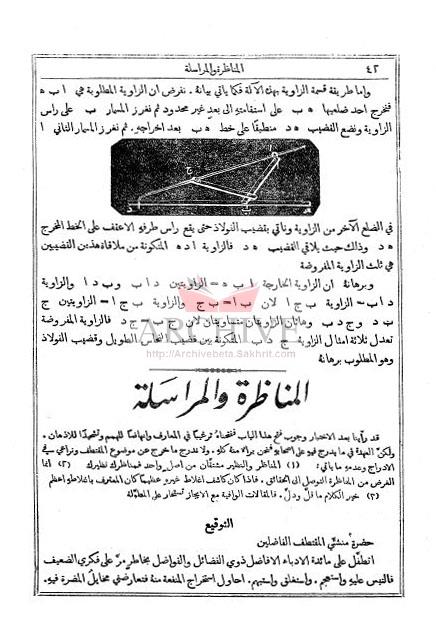 ٤٢ المناظرة والمراسلة
واما طريقة قسمة الزاوية بهذه الآلة فكما يأتي بيانة. نفرض ان الزاوية المطلوبة هي ا ب ه
فنخرج احد ضلعيها ه ب على استقامتهِ الى بعدٍ غير محدود ثم نغرز المسمار ب على راس
الزاوية ونضع القضيب ه د منطبقًا على خط ه ب بعد اخراجهِ. ثم نغرز المسمار الثاني ا
في الضلع الآخر من الزاوية ونأتي بقضيب الفولاذ حتى يقع راس طرفهِ الاعقف على الخط المخرج
ه د وذلك حيث يلاقي القضيب ه د فالزاوية ا د ه المتكونة من ملاقاة هذين القضيبين
هي ثلث الزاوية المفروضة
وبرهانهُ ان الزاوية الخارجة ا ب ه = الزاويتين د ا ب وب د ا والزاوية
د ا ب = الزاوية ب ج ا لان ب ا = ب ج والزاوية ب ج ا = الزاويتين ج
ب د وج د ب وهاتان الزاويتان متساويتان لان ج ب = ج د فالزاوية المفروضة
تعدل ثلاثة امثال الزاوية ج د ب المتكونة بين قضيب النحاس الطويل وقضيب الفولاذ
وهو المطلوب برهانهُ
ARCHIVE
http://Archivebeta.Sakhrit.com
المناظرة والمراسلة
قد رأينا بعد الاختبار وجوب فتح هذا الباب ففتحناهُ ترغيبًا في المعارف وانهاضًا للهمم وتشحيذًا للاذهان.
ولكنّ العهدة في ما يدرج فيهِ على اصحابهِ فنحن برالا منهُ كلهِ. ولا ندرج ما خرج عن موضوع المقتطف ونراعي في
الادراج وعدمهِ ما ياتي: (١) المناظر والنظير مشتقّان من اصل واحد فمناظرك نظيرك (٢) انما
الغرض من المناظرة التوصل الى الحقائق. فاذا كان كاشف اغلاط غيرهِ عظيمًا كان المعترف باغلاطهِ اعظم
(٣) خير الكلام ما قلّ ودلّ. فالمقالات الوافية مع الايجاز تستخار على المطوّلة
التوقيع
حضرة منشئي المقتطف الفاضلين
اتطفّل على مائدة الادباء الافاضل ذوي الفضائل والفواضل بخاطرٍ مرّ على فكري الضعيف
فالتبس عليهِ واستعجم. واستغلق واستبهم. احاول استخراج المنفعة منهُ فتعارضني مخايلُ المضرة فيهِ.